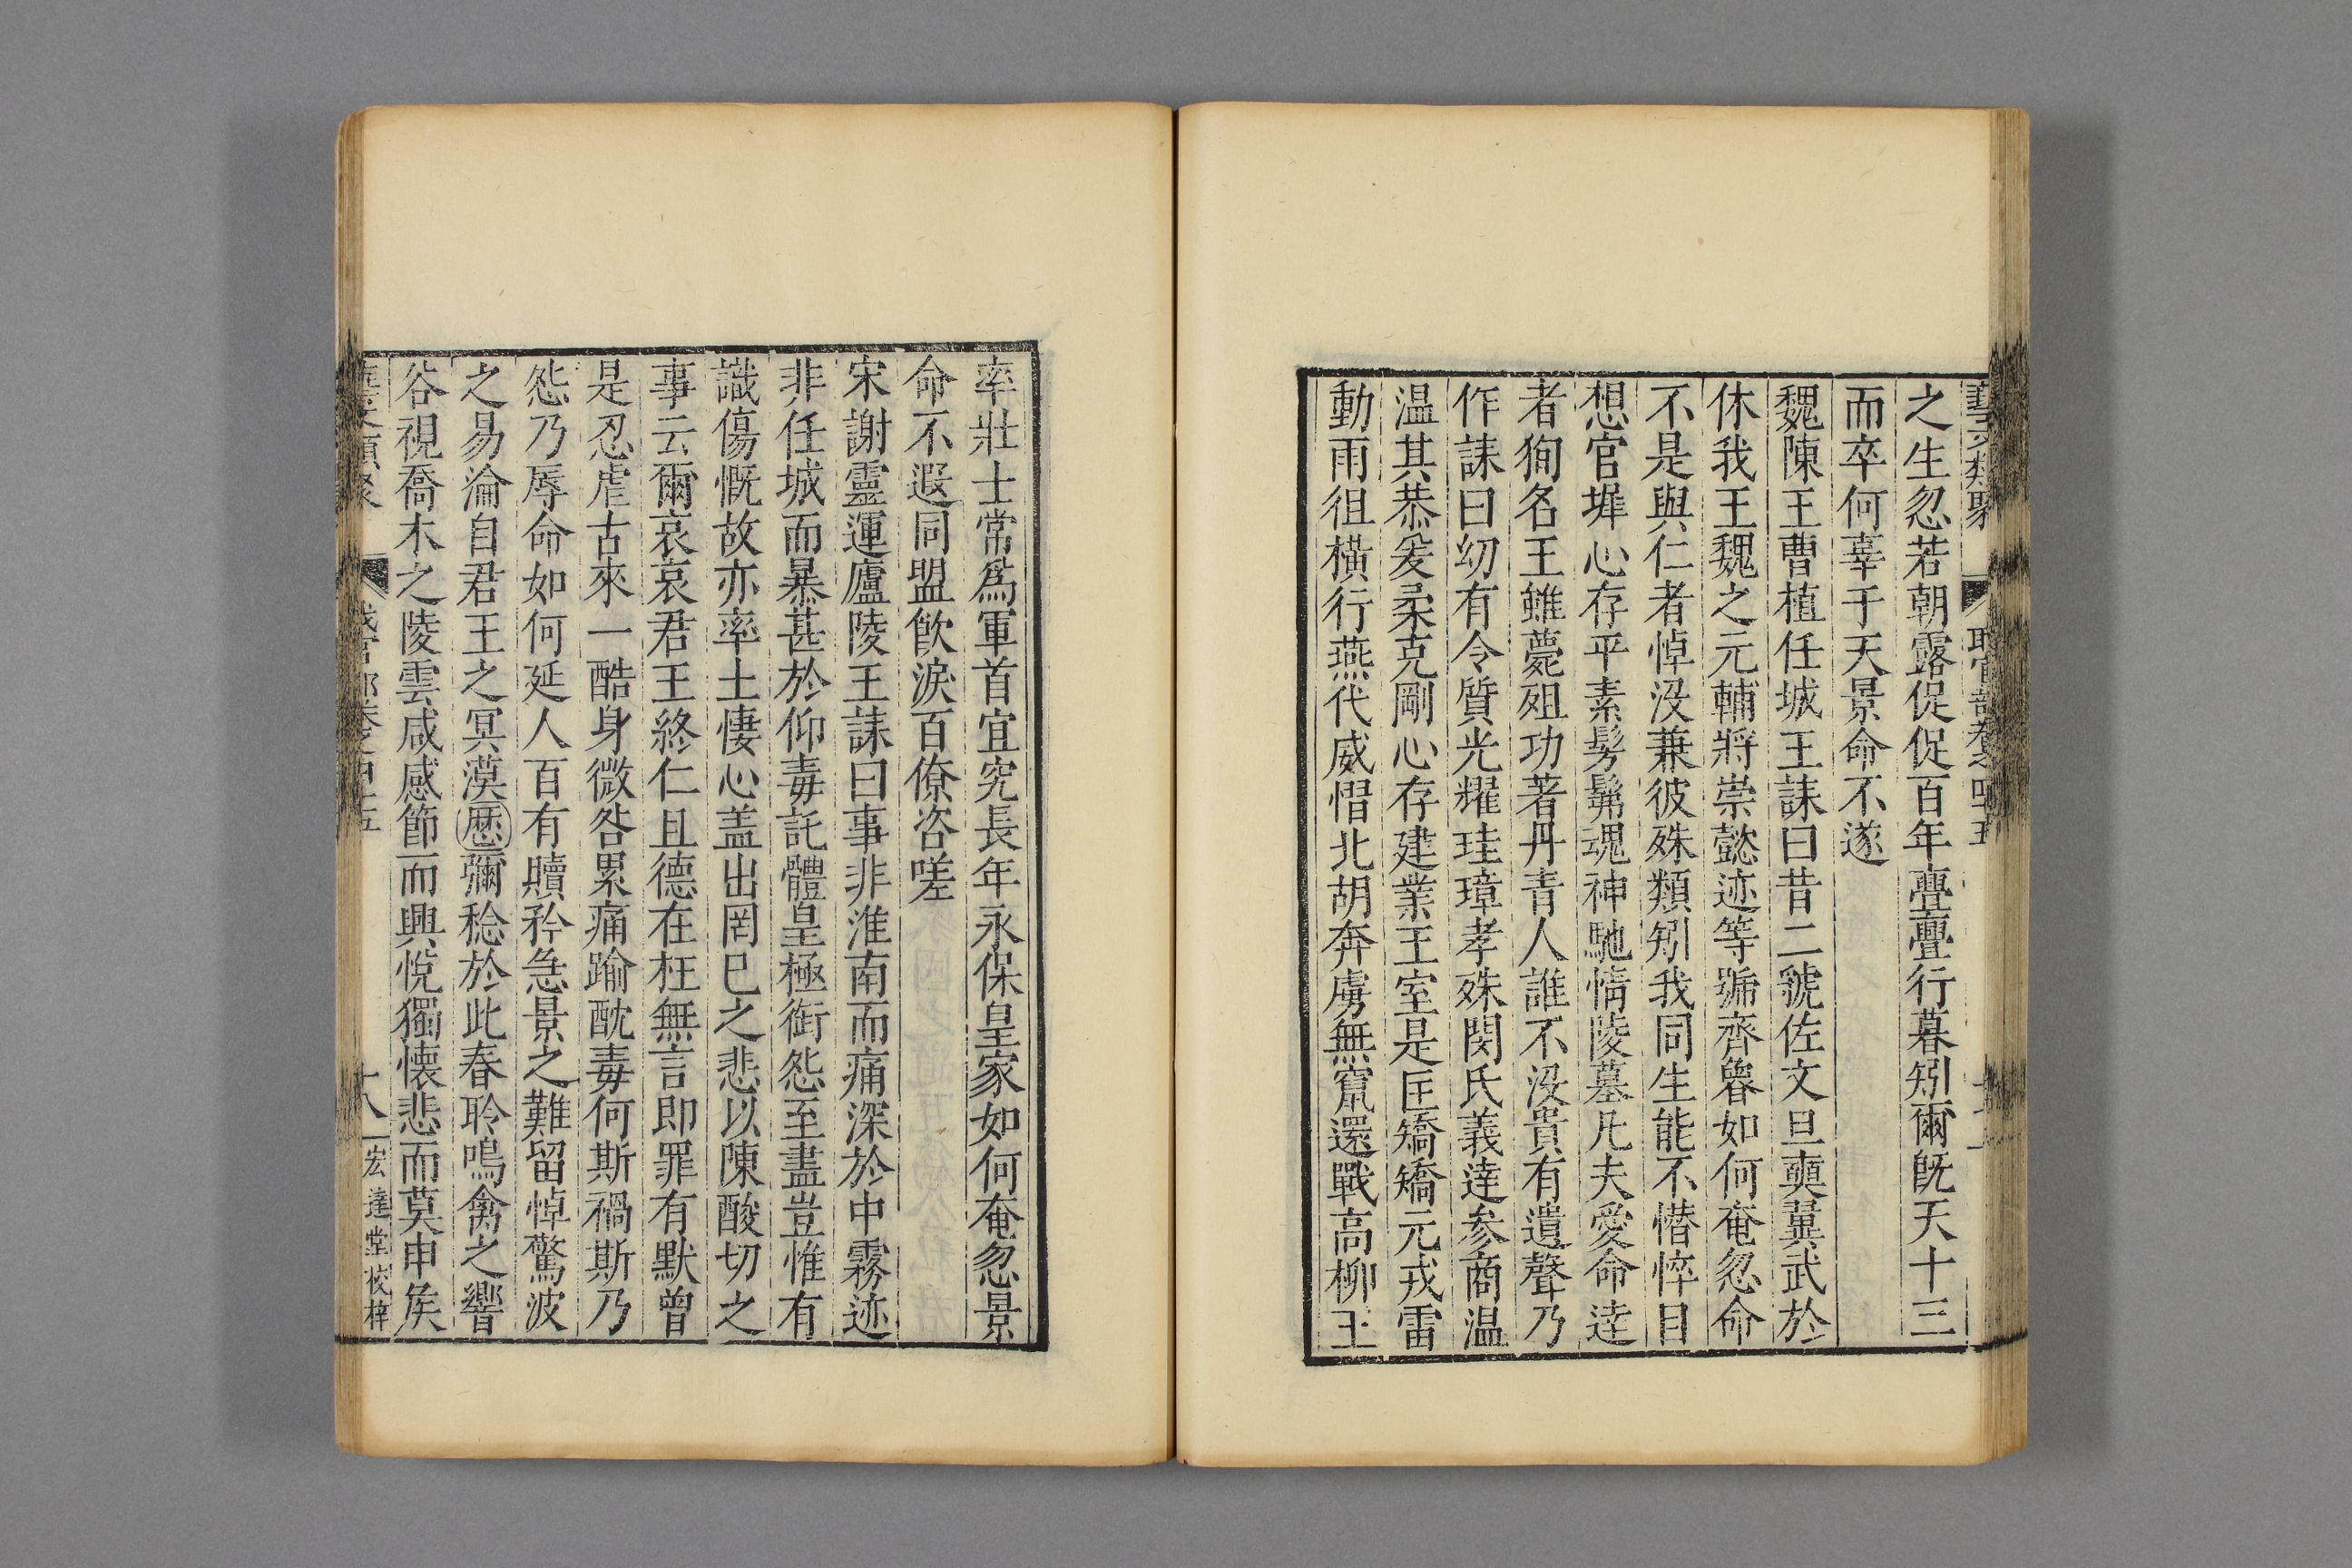 之生忽若朝露促促百年亹亹行暮矧爾旣夭十三
而卒何辜于天景命不遂
魏陳王曹植任城王誄曰昔二虢佐文旦奭翼武於
休我王魏之元輔將崇懿迹等號齊魯如何奄忽命
不是與仁者悼没兼彼殊類矧我同生能不憯悴目
想官墀心存平素髣髴魂神馳情陵墓凡夫愛命逹
者狥名王雖薨殂功著丹青人誰不没貴有遺聲乃
作誄曰幼有令質光耀珪璋孝殊閔氏義逹参商温
温其恭爰柔克剛心存建業王室是匡矯矯元戎雷
動雨徂橫行燕代威慴北胡奔虜無竄還戰高柳王
率壯士常爲軍首宜究長年永保皇家如何奄忽景
命不遐同盟飮淚百僚咨嗟
宋謝靈運廬陵王誄曰事非淮南而痛深於中霧迹
非任城而暴甚於仰毒託體皇極銜怨至盡豈惟有
識傷慨故亦率土悽心盖出罔巳之悲以陳酸切之
事云爾哀哀君王終仁且德在枉無言即罪有默曾
是忍虐古來一酷身微咎累痛踰酖毒何斯禍斯乃
怨乃辱命如何延人百有贖矜急景之難留悼驚波
之易淪自君王之冥漠厯彌稔於此春聆鳴禽之響
谷視喬木之陵雲咸感節而興悅獨懐悲而莫申矦
宏達堂校梓